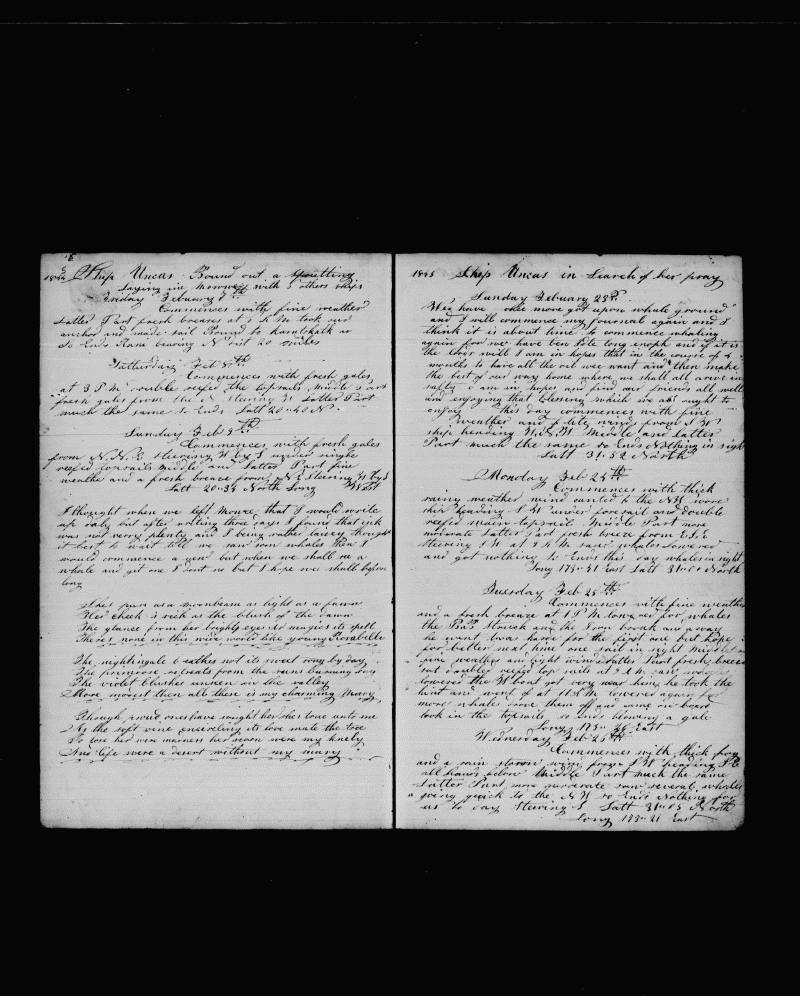 Ship Uncas Bound out a
Laying in with 5 others ships
Friday Febuary 7th
Commences with fine weather
Latter Part fresh breases at 5 P M took our
anchor and made sail Bound to
So Ends bearing N dist 20 miles
Satterday Feb 8th
Commences with fresh gales
at 3 P M double reefed the topsails, Middle Part
fresh gales from the N steering W Latter Part
much the same So Ends Latt 20-40 N
Sunday Feb 9th
Commences with fresh gales
from N.N.E. steering W by S under single
reefed topsails Middle and Latter Part fine
weathe and a fresh breeze from N E Steering W by S
Latt 20-34 North Long
I thought when we left that I would write
up daly but after writing three days I found that ink
was not verry plenty and I being rather laisey thought
it best to wait till we saw som whales then I
would commence a new but when we shall see a
whale and git one I but I hope we shall before
long
Shes pure as a moonbeam as light as a fawn
Her cheek is rich as the blush of the dawn
The glance from her bright eyes its spell
Theres none in this wide world like young Rosabelle
The nightingale breathes not its sweet song by day
The primrose retreats from the suns burning ray
The violet blushes unseen in the valley
More modest then all these is my charming Mary
Though proud ones have sought her shes true unto me
As the soft vine encircling its love mate the tree
To love her were madness her scorn were my knely
And life were a desert without my mary
1845 Ship Uncas in Search of her pray
Sunday Febuary 23rd
We have once more got upon whale ground
and I will commence my journal again and I
think it is about time to commence whaling
again for we have ben Idle long enoph and if it is
the will I am in hopes that in the course of
months to have all the oil wee want and then make
the best of our way home where we shall all arive in
safty i am in hopes and find our friends all well
and enjoying that Blessing which we all ought to
enjoy this day commences with fine
weather and wind from S W
ship heading W.N.W. Middle and Latter
Part much the same So Ends Nothing in sight
Latt 31-52 North
Monday Feb 24th
Commences with thick
rainy weather wind canted to the NW wore
ship heading S W under foresail and double
reefed main topsail Middle Part more
moderate Latter part fresh breeze from E.S.E
Steering S W at 8 A M saw whales Lowered
and got nothing So Ends this day whales in sight
Long 175-31 East Latt North
Tuesday Feb 25th
Commences with fine weather
and a fresh breeze at 1 P M Lowered for whales
the Struck and the Iron broke and away
he went for the first one but hope
for better next time one sail in sight Middle
fine weather and light winds Latter Part fresh breeze
double reefed top sails at 8 A M saw
lowered the W boat got very near him he took the
hint and went of at 11 A M lowered again for
more whales drove them off and came on board
took in the topsails so ends blowing a gale
Long 175- East
Wednesday Feb 26th
Commences with thick fog
and a rain storm wind from S W heading
all hands below Middle Part much the same
Latter Part more moderate saw several whales
going quick to the N W so Ends Nothing for
us to day Steering S Latt North
Long 173-21 East